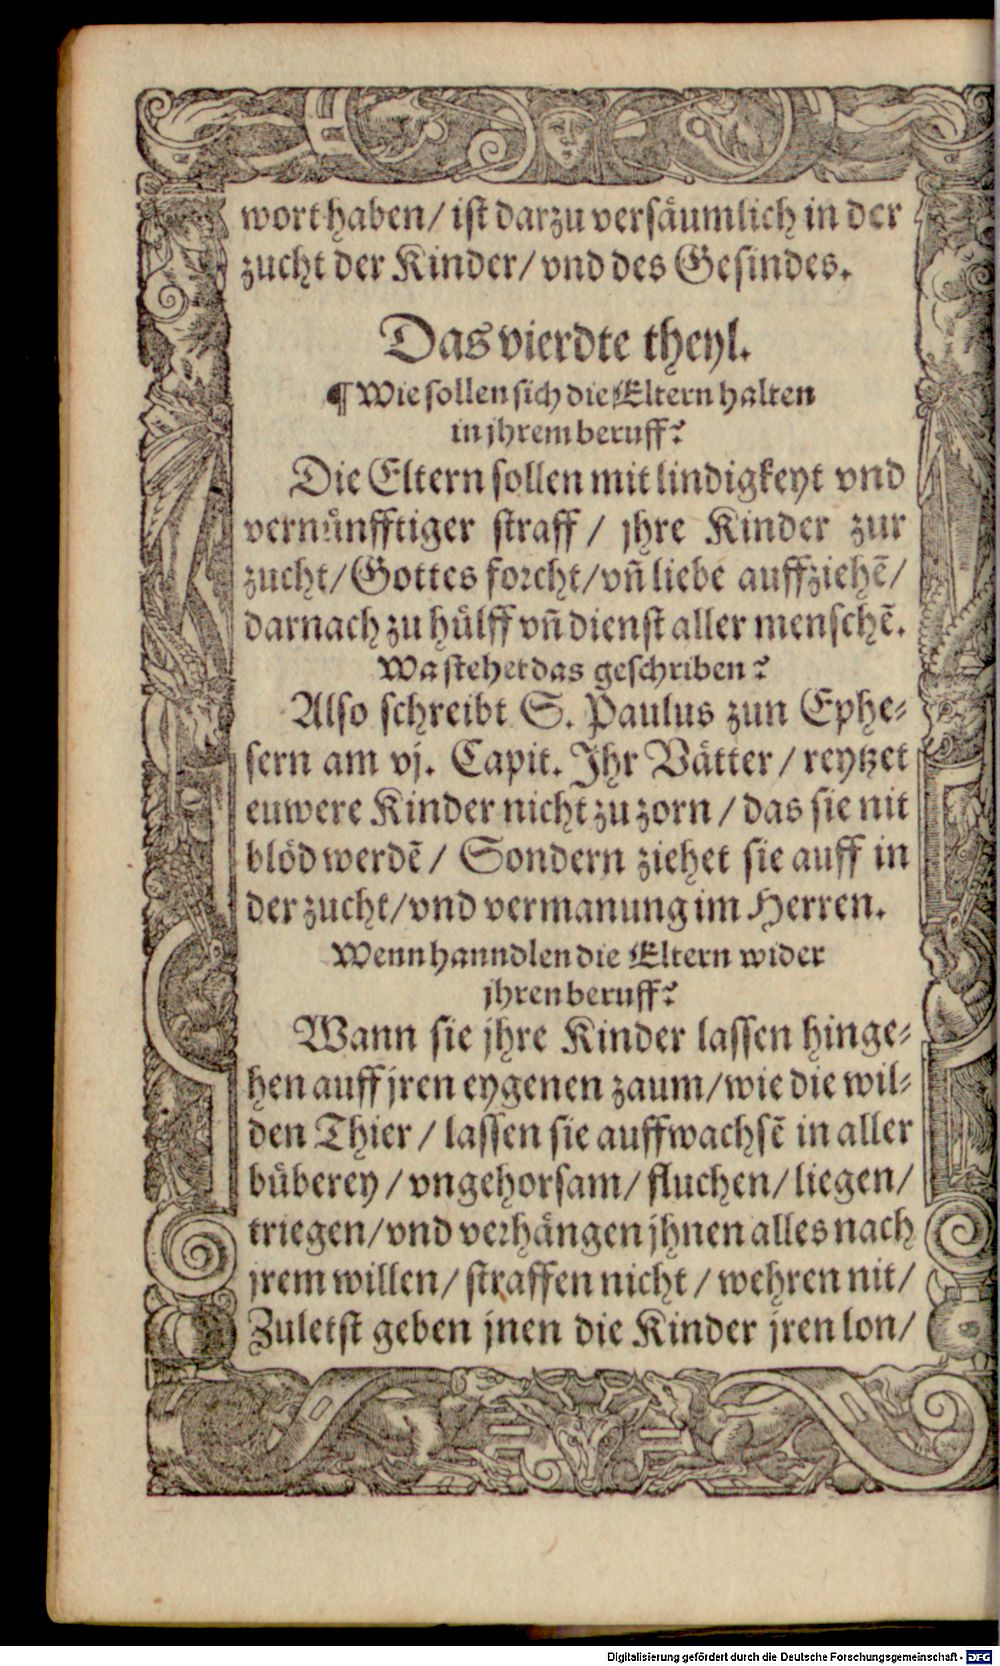 wort haben/ ist darzu versäumlich in der
zucht der Kinder/ vnd des Gesindes.
Das vierdte theyl.
¶ Wie sollen sich die Eltern halten
in jhrem beruff?
Die Eltern sollen mit lindigkeyt vnd
vernünfftiger straff/ jhre Kinder zur
zucht/ Gottes forcht/ vñ liebe auffziehẽ/
darnach zu hülff vñ dienst aller menschẽ.
Wa stehet das geschriben?
Also schreibt S. Paulus zun Ephe-
sern am vj. Capit. Jhr Vätter/ reytzet
euwere Kinder nicht zu zorn/ das sie nit
blöd werdẽ/ Sondern ziehet sie auff in
der zucht/ vnd vermanung im Herren.
Wenn hanndlen die Eltern wider
jhren beruff?
Wann sie jhre Kinder lassen hinge-
hen auff jren eygenen zaum/ wie die wil-
den Thier/ lassen sie auffwachsẽ in aller
büberey/ vngehorsam/ fluchen/ liegen/
triegen/ vnd verhängen jhnen alles nach
jrem willen/ straffen nicht/ wehren nit/
Zuletst geben jnen die Kinder jren lon/
Digitalisierung gefördert durch die Deutsche Forschungsgemeinschaft - DFG